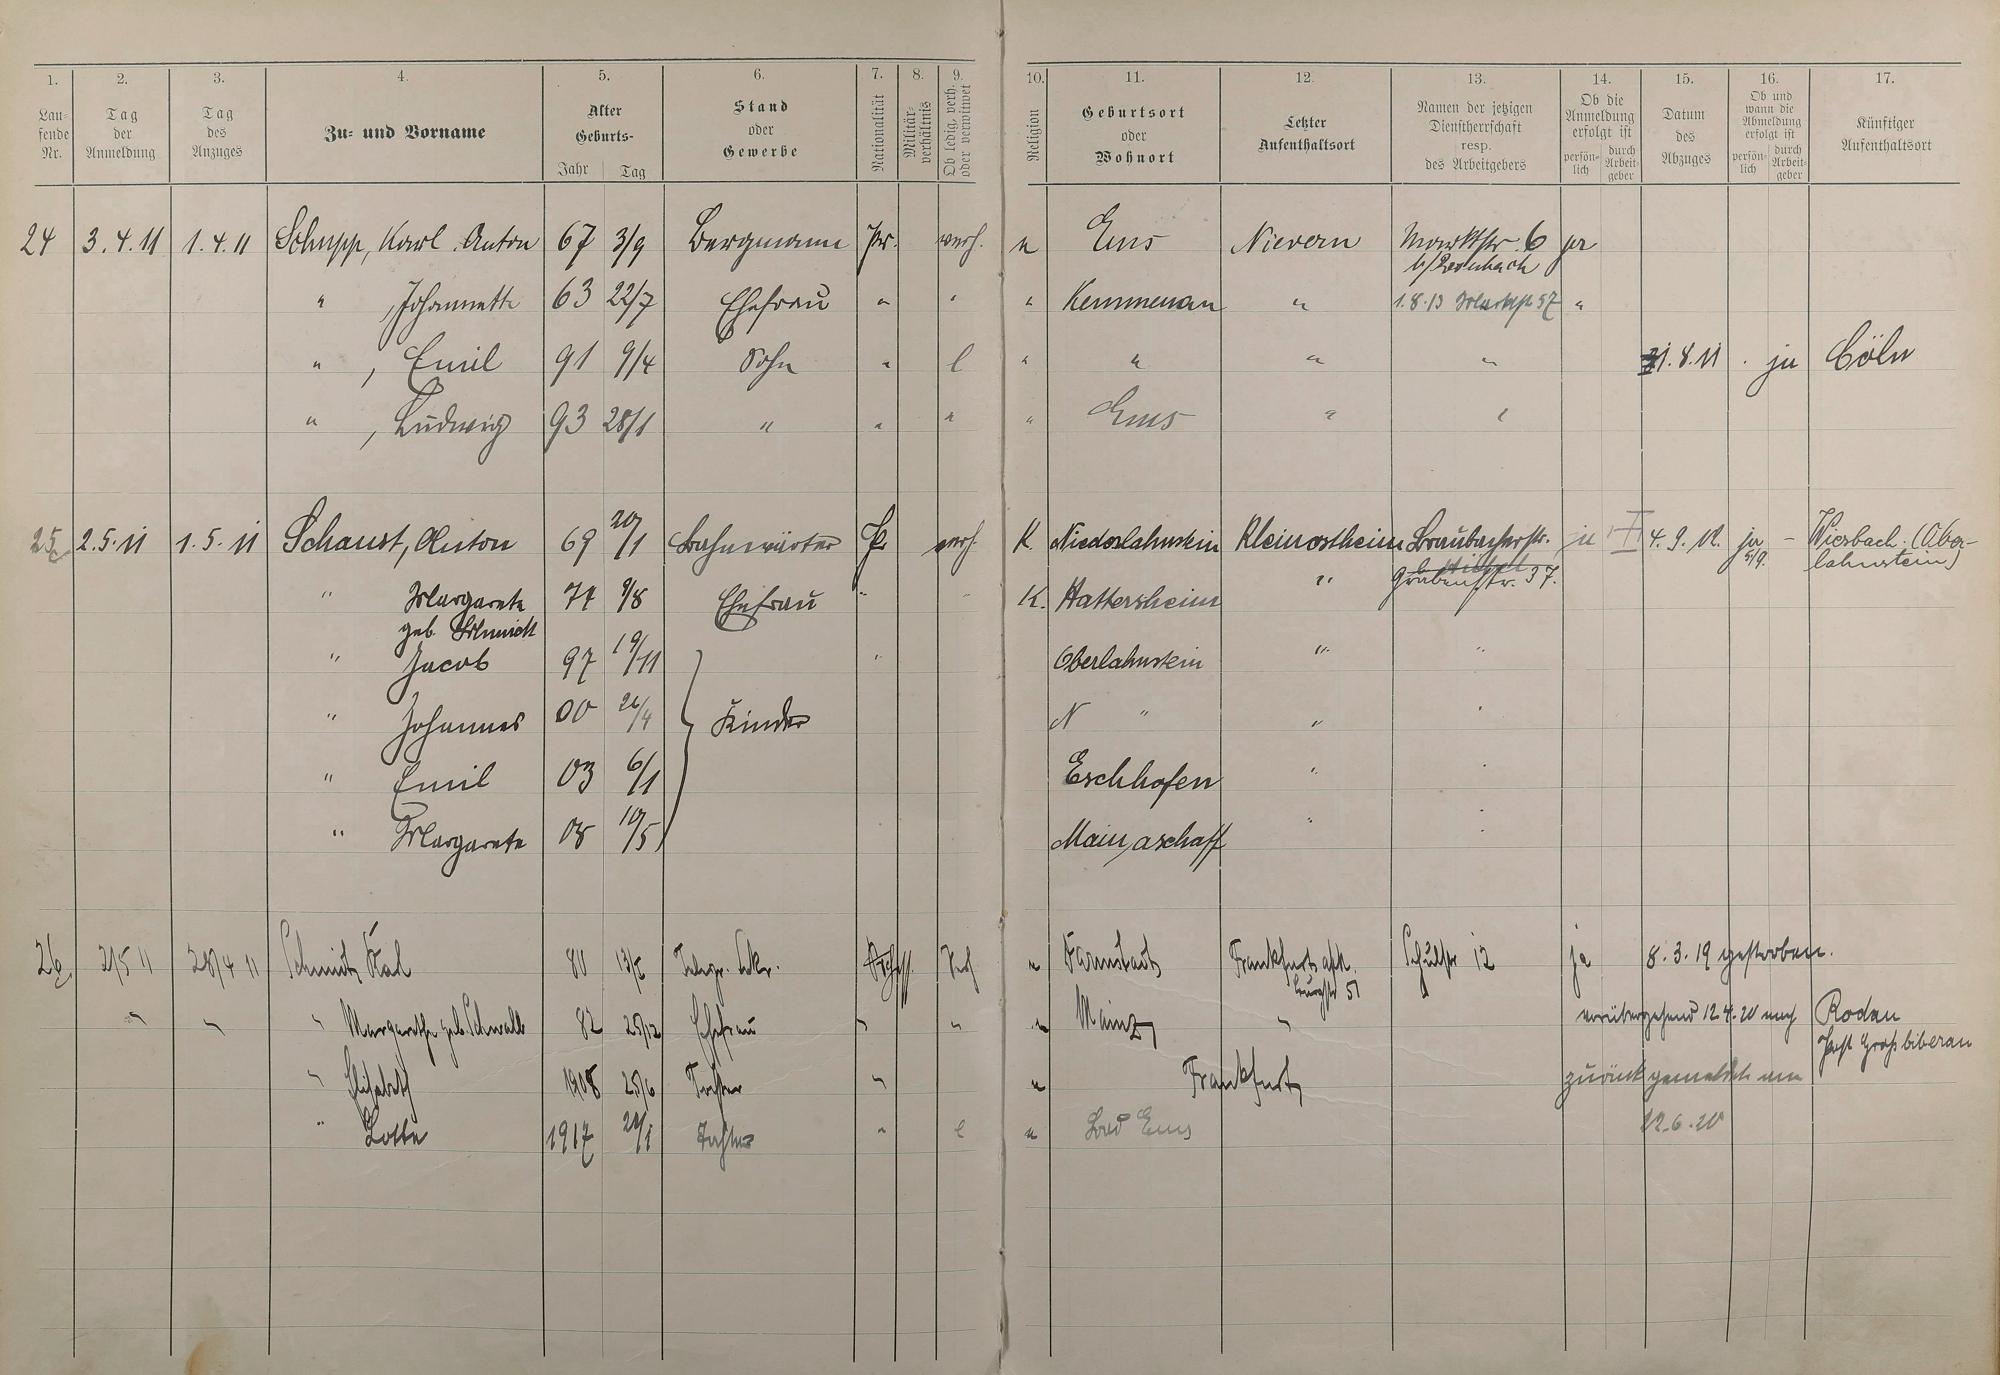 1. 2. 3. 4. 5. 6. 7. 8. 9. 10. 11. 12. 13. 14. 15. 16. 17.
Lau-
fende
Nr.
Tag
der
Anmeldung
Tag
des
Anzuges
Zu- und Vorname
Alter
Geburts-
Jahr Tag
Stand
oder
Gewerbe
Nationalität
Militär-
verhältnis
Ob ledig, verh.
oder verwitwet
Religion
Geburtsort
oder
Wohnort
Letzter
Aufenthaltsort
Namen der jetzigen
Dienstherrschaft
resp.
des Arbeitgebers
Ob die
Anmeldung
erfolgt ist
persön-
lich
durch
Arbeit-
geber
Datum
des
Abzuges
Ob und
wann die
Abmeldung
erfolgt ist
persön-
lich
durch
Arbeit-
geber
Künftiger
Aufenthaltsort
24 3.4.11 1.4.11 Schupp, Karl Anton 67 3/9 Bergmann Pr. verh. Ems Nievern Marktstr. 6 ja
" , Johannette 63 22/7 Ehefrau " " " Kemmenau " 1.8.13 57 "
" , Emil 91 9/4 Sohn " l " " " " 31.8.11 ja Cöln
" , Ludwig 93 28/1 " " " " Ems " "
25 2.5.11 1.5.11 Schaust, Anton 69 20/1 Bahnwärter Pr verh. K. Niederlahnstein Kleinostheim Braubacherstr. ja 4.9.12. ja - Wiesbach. (Ober-
5/9. lahnstein)
" Margarete 74 9/8 Ehefrau " " K. Hattersheim " Grabenstr. 37.
geb. Schmidt
" Jacob 97 19/11 " Oberlahnstein " "
" Johannes 00 26/4 Kinder N " " "
" Emil 03 6/1 Eschhofen " "
" Margarete 08 10/5 Mainaschaff " "
26 2/5 11 28/4 11 Schmidt Karl 80 13/5 Telegr. Sekr. Verh Darmstadt Frankfurt Schulstr 12 ja 8.3.19 gestorben.
51
" " " Margarethe geb. Schwalb 82 25/12 Ehefrau " " Mainz " vorübergehend 12.4.20 nach Rodau
Post Großbiberau
" Elisabeth 1908 25/6 Tochter " Frankfurt zurückgemeldet am
" Lotte 1917 24/1 Tochter " l Bad Ems 22.6.20